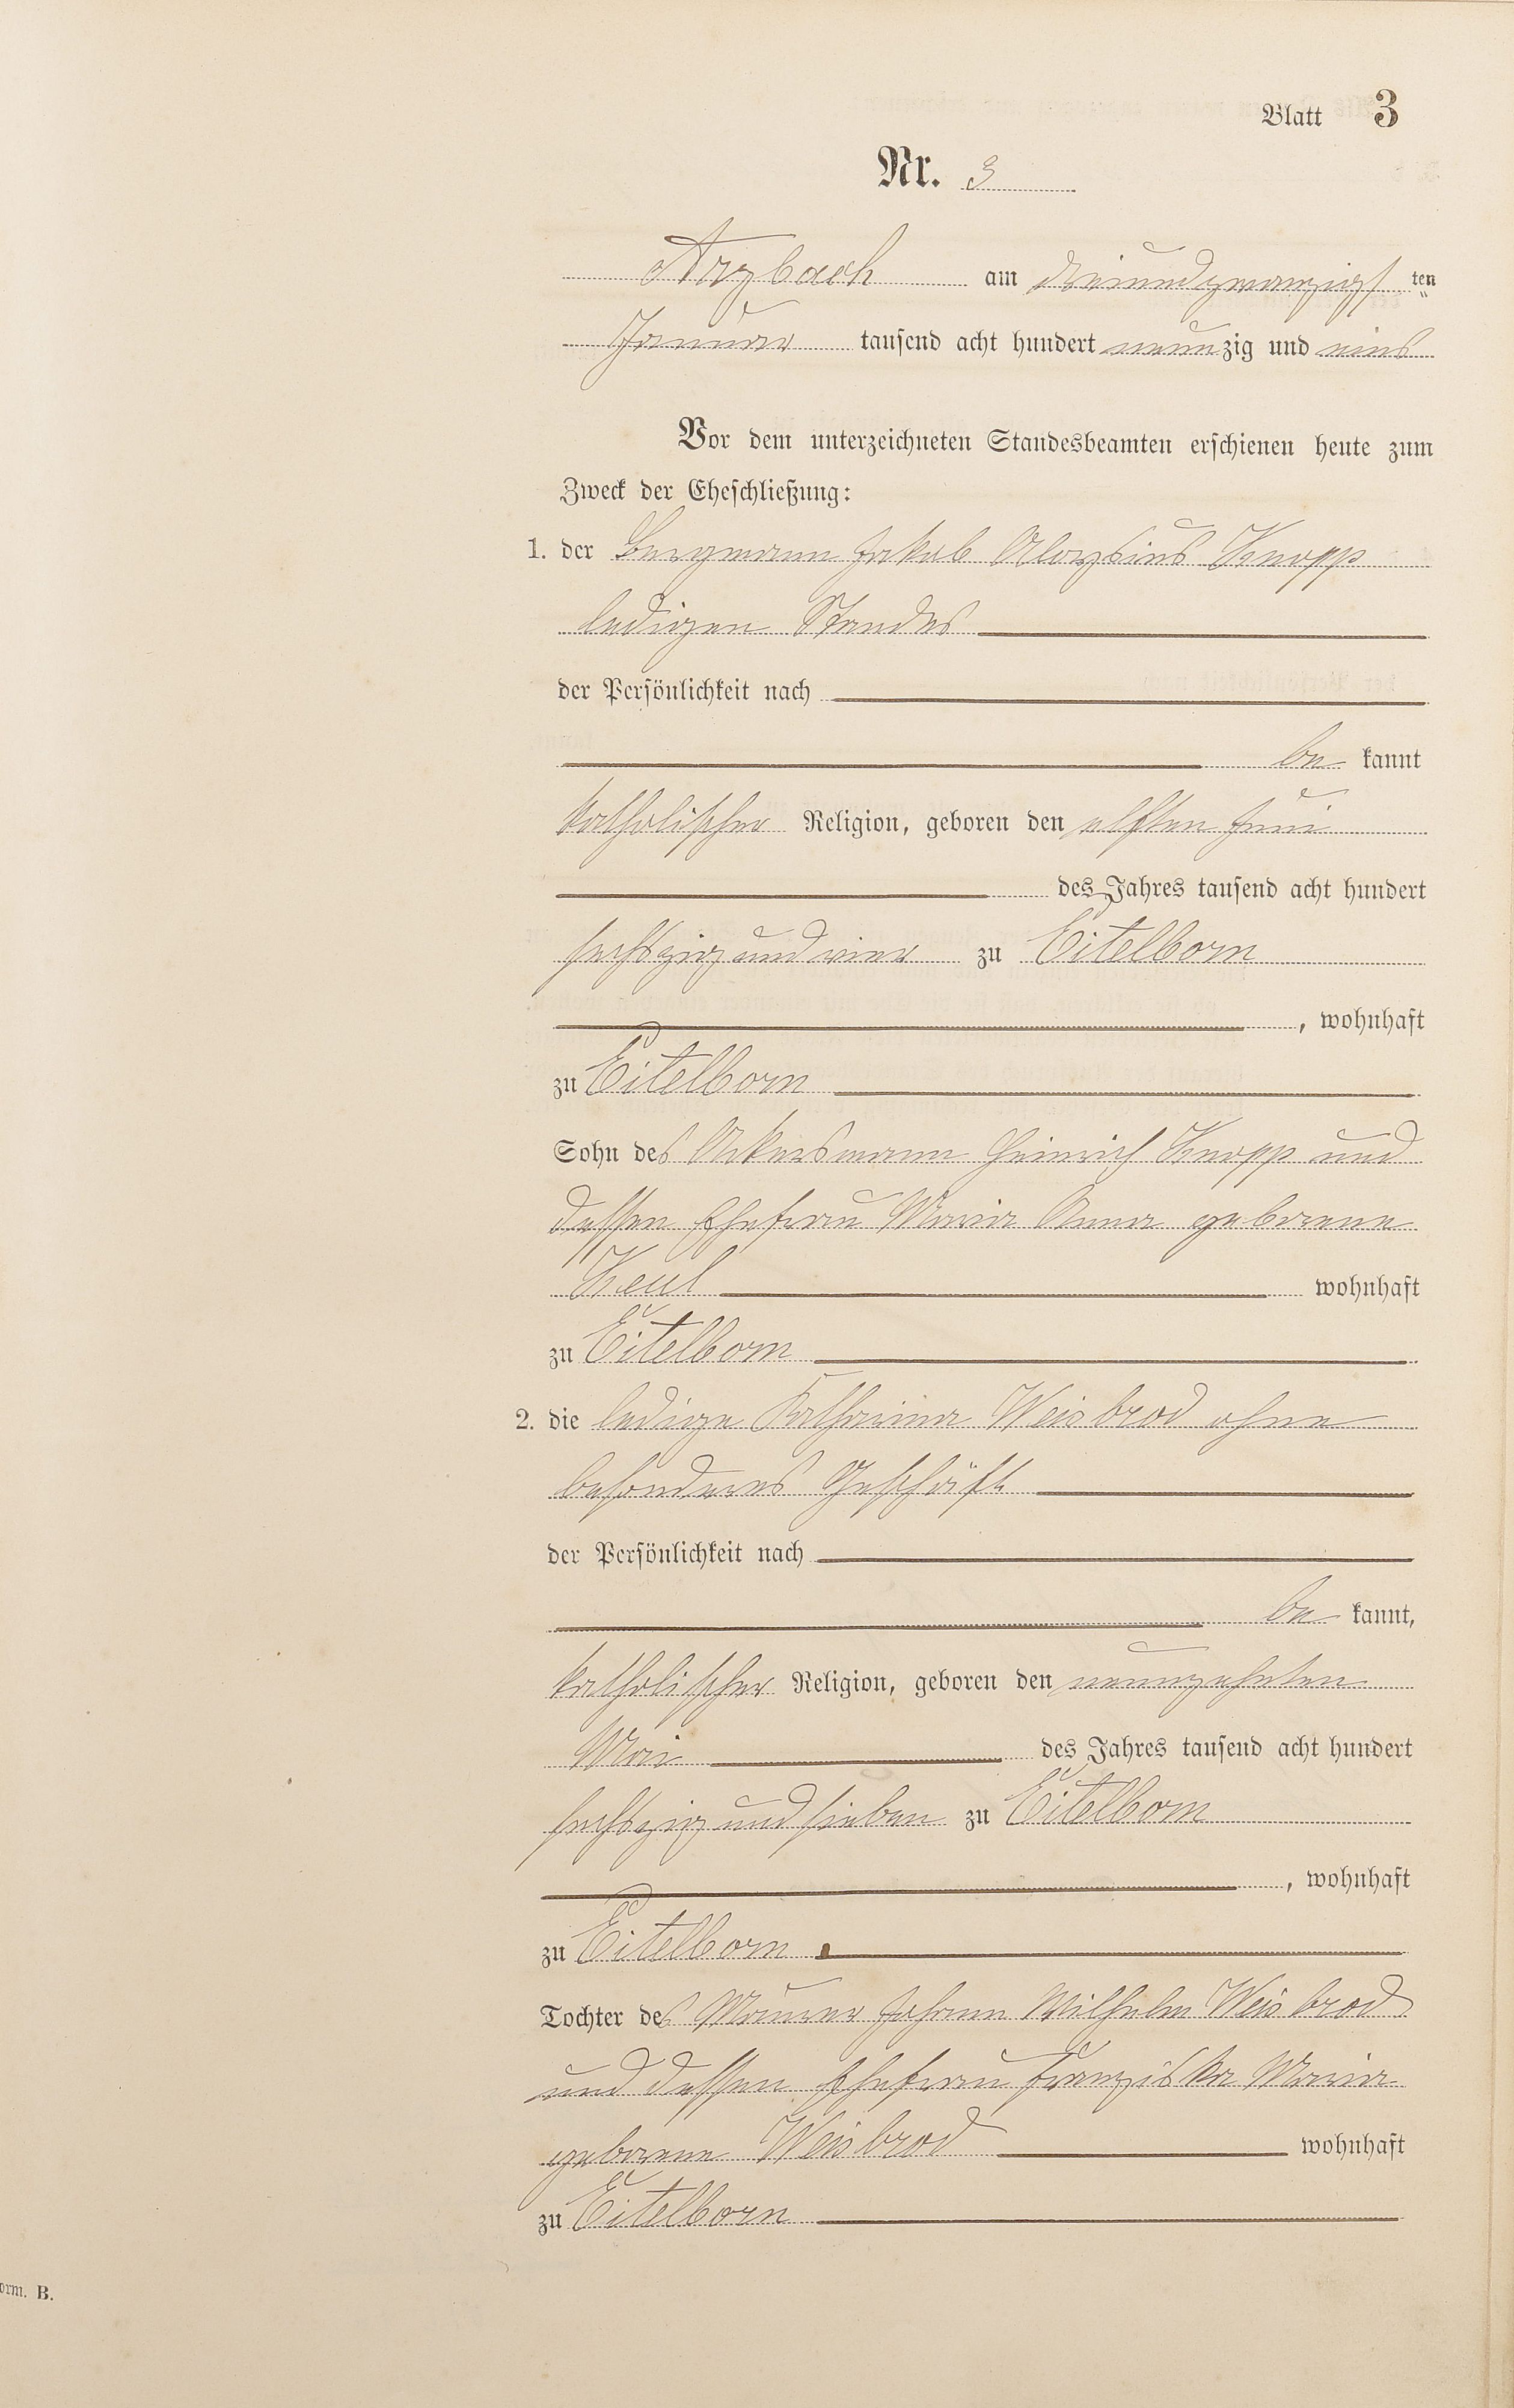 Blatt 3
Nr. 3
Arzbach am dreiundzwanzigs ten
Januar tausend acht hundert neunzig und eins
Vor dem unterzeichneten Standesbeamten erschienen heute zum
Zweck der Eheschließung:
1. der Bergmann Jakob Aloysius Knopp
ledigen Standes
der Persönlichkeit nach
be kannt
katholischer Religion, geboren den elften Juni
des Jahres tausend acht hundert
sechszig und vier zu Eitelborn
, wohnhaft
zu Eitelborn
Sohn des Ackersmann Heinrich Knopp und
dessen Ehefrau Maria Anna geborene
Keul wohnhaft
zu Eitelborn
2. die ledige Katharina Weisbrod ohne
besonderes Geschäft
der Persönlichkeit nach
be kannt,
katholischer Religion, geboren den neunzehnten
Mai des Jahres tausend acht hundert
sechszig und sieben zu Eitelborn
, wohnhaft
zu Eitelborn
Tochter des Maurer Johann Wilhelm Weisbrod
und dessen Ehefrau Franziska Maria
geborene Weisbrod wohnhaft
zu Eitelborn
orm. B.